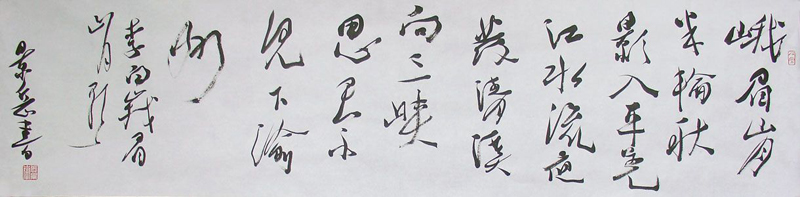 峨眉山月
半輪秋
影入平羌
江水流夜
發清溪
向三峽
思君不
見下渝
州
李白峨眉
山月歌
景書